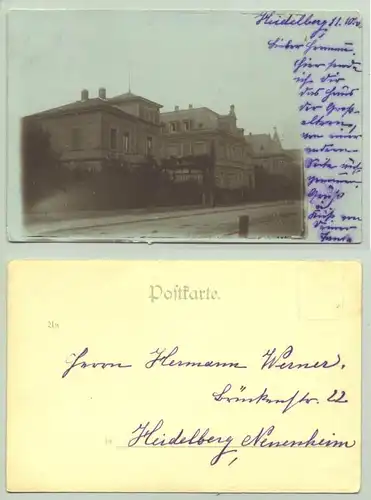 Heidelberg 11.10.
Lieber Hermann.
Hier sende
ich Dir
das Haus
der Groß-
eltern,
von einer
andern
Seite auf-
genommen.
Gruß
Kuß von
Deiner
Tante
Postkarte.
An
Herrn Hermann Werner.
Brückenstr. 22
in Heidelberg Neuenheim